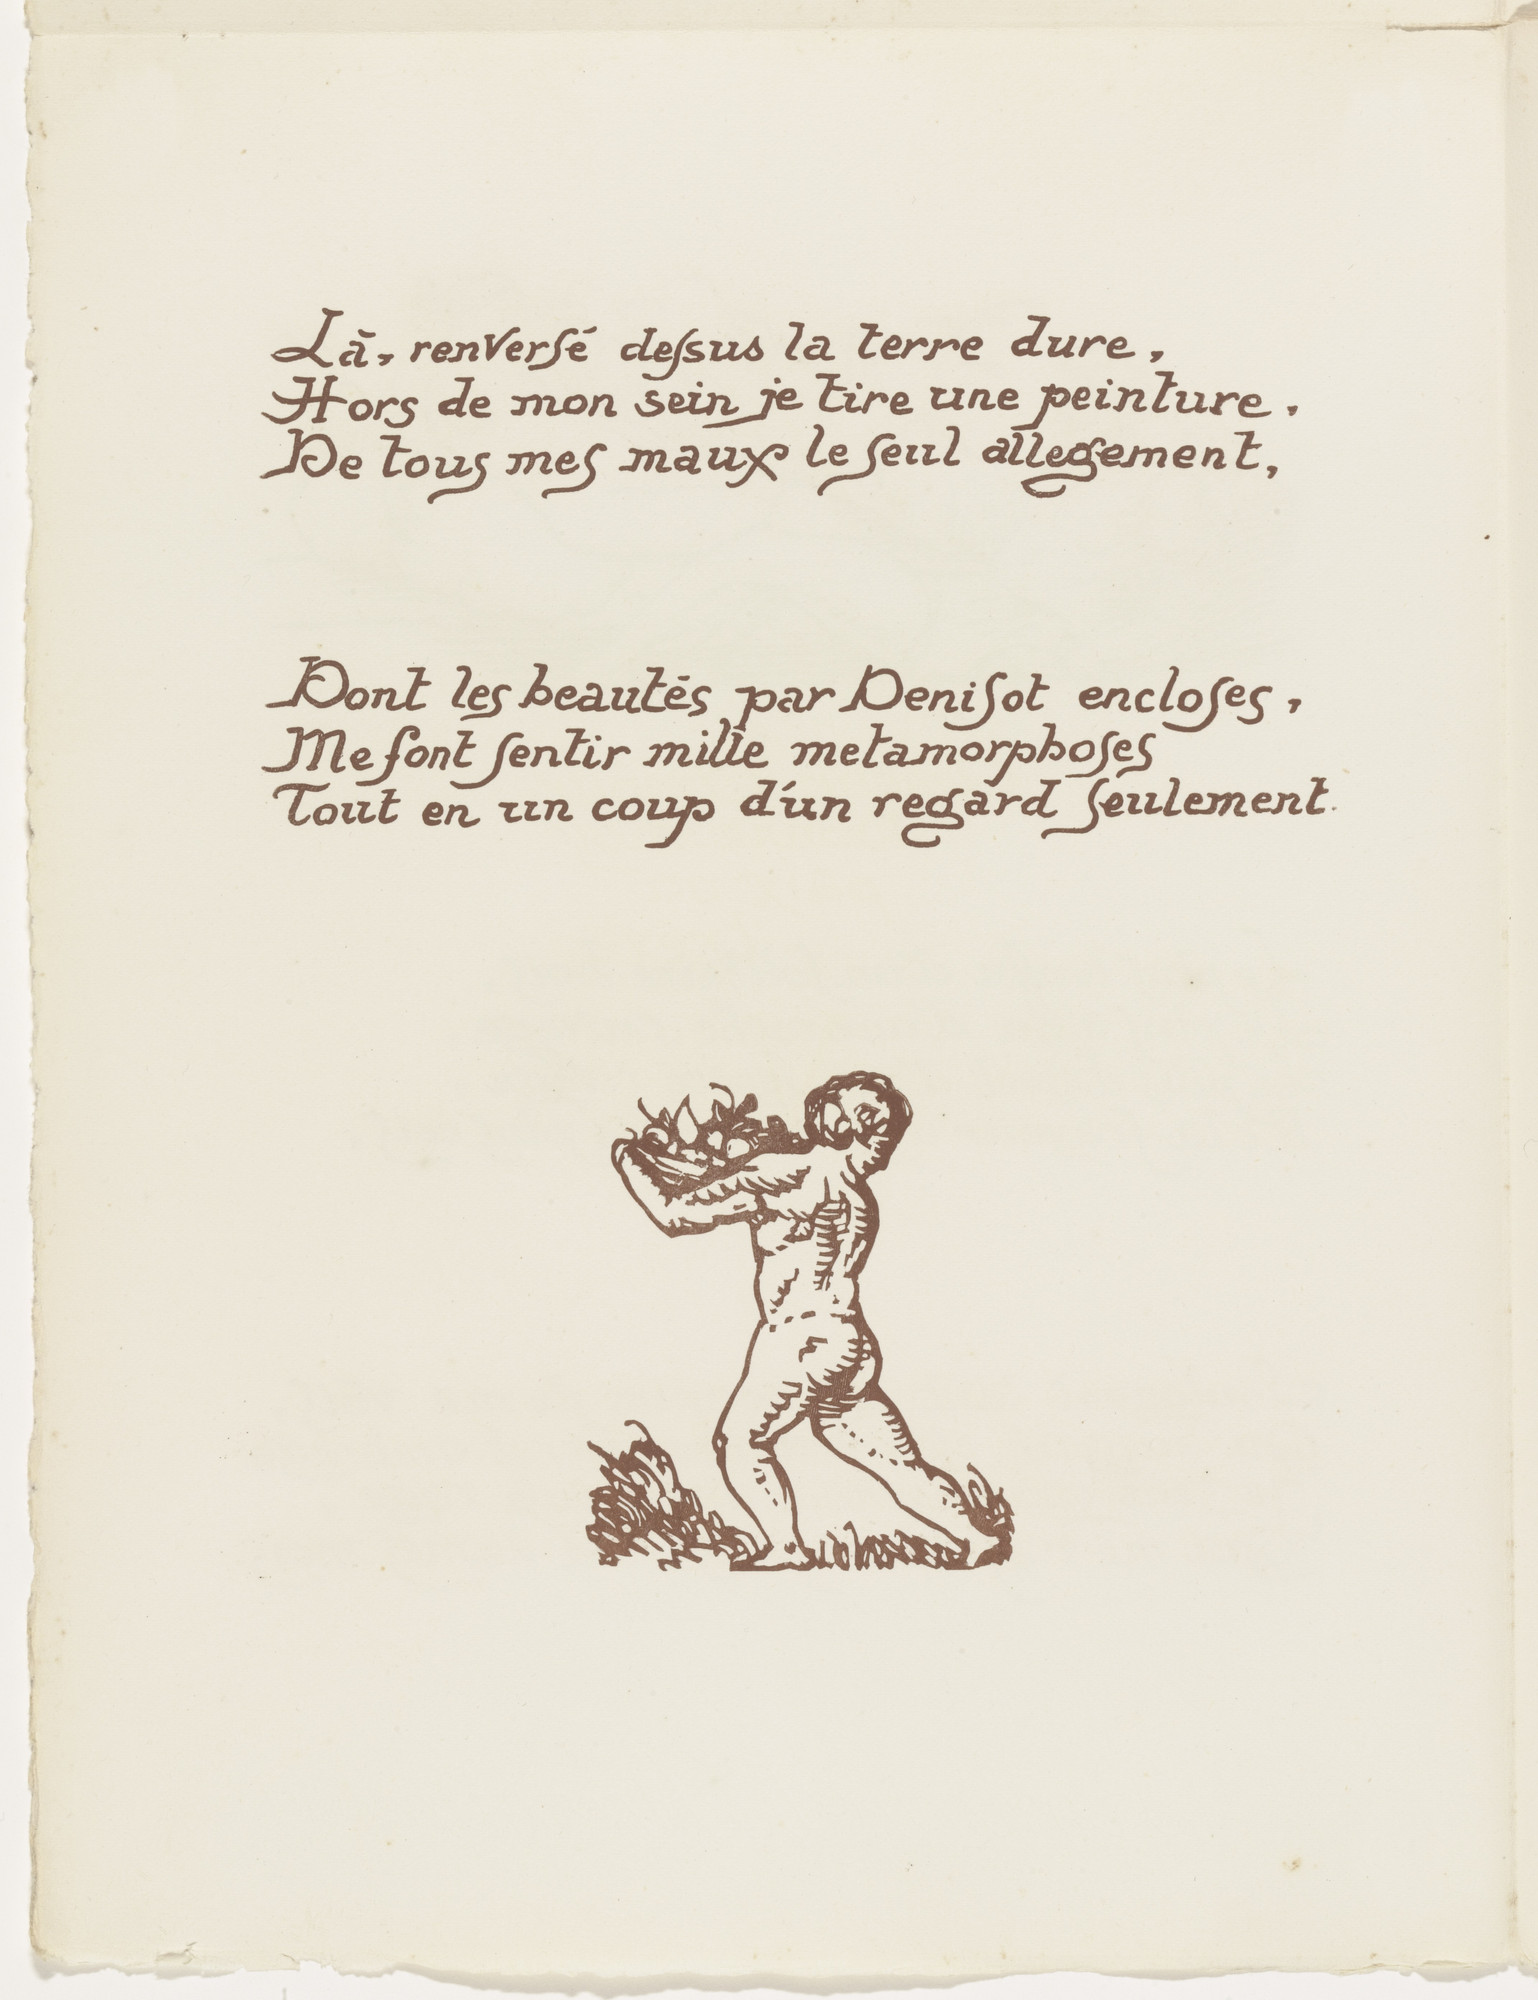 Là, renverſé deſsus la terre dure,
Hors de mon sein je tire une peinture,
De tous mes maux le ſeul allegement,
Dont les beautés par Deniſot encloſes,
Me font ſentir mille metamorphoſes
Tout en un coup d'un regard ſeulement.